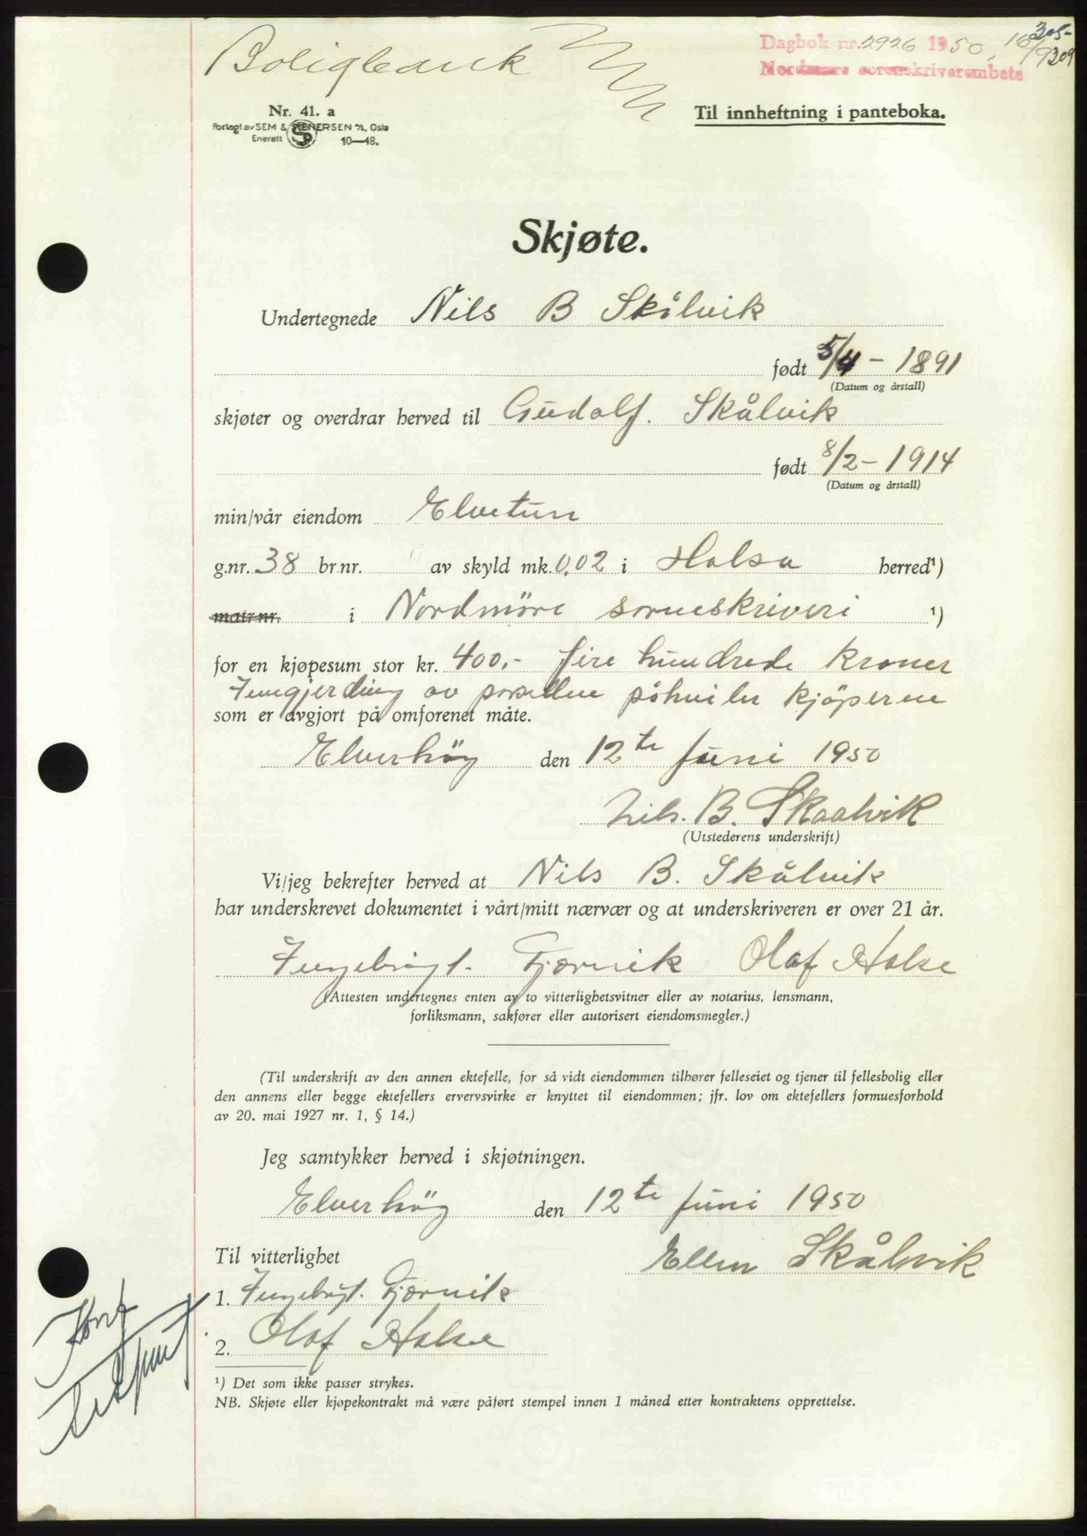 Boligbank
Dagbok nr. 2926 1950, 16/9
305-
209
Nordmøre sorenskriverembete
Nr. 41. a
Forlagt av SEM & STENERSEN A/S, Oslo
Enerett 10—48.
Til innheftning i panteboka.
Skjøte.
Undertegnede Nils B Skålvik
født 5/4 - 1891
(Datum og årstall)
skjøter og overdrar herved til Gudolf. Skålvik
født 8/2 - 1914
(Datum og årstall)
min/vår eiendom Elvetun
g.nr. 38 br nr. av skyld mk. 0,02 i Halsa herred¹)
matr nr. i Nordmöre sorneskriveri ¹)
for en kjøpesum stor kr. 400,- fire hundrede kroner
Inngjerding av parsellen påhviler kjöperen
som er avgjort på omforenet måte.
Elverhöy den 12te juni 1950
Nils. B. Skaalvik
(Utstederens underskrift)
Vi/jeg bekrefter herved at Nils B. Skålvik
har underskrevet dokumentet i vårt/mitt nærvær og at underskriveren er over 21 år.
Ingebrigt. Gjørvik Olaf Halse
(Attesten undertegnes enten av to vitterlighetsvitner eller av notarius, lensmann,
forliksmann, sakfører eller autorisert eiendomsmegler.)
(Til underskrift av den annen ektefelle, for så vidt eiendommen tilhører felleseiet og tjener til fellesbolig eller
den annens eller begge ektefellers ervervsvirke er knyttet til eiendommen; jfr. lov om ektefellers formuesforhold
av 20. mai 1927 nr. 1, § 14.)
Jeg samtykker herved i skjøtningen.
Elverhöy den 12te juni 1950
Til vitterlighet
Ellen Skålvik
1. Ingebrigt. Gjørvik
2. Olaf Halse
Konf
¹) Det som ikke passer strykes.
NB. Skjøte eller kjøpekontrakt må være påført stempel innen 1 måned etter kontraktens opprettelse.